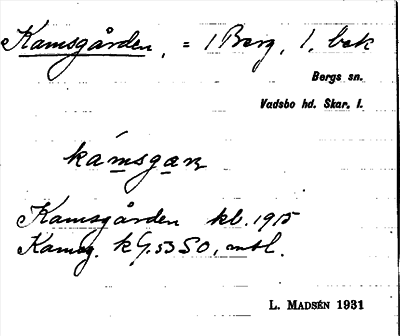 Kamsgården, = 1 Berg, 1. bek
Bergs sn.
Vadsbo hd. Skar. l.
kámsgaɳ
Kamsgården kb. 1915
Kamsg. kG. 53 SO, mtl.
L. MADSÉN 1931